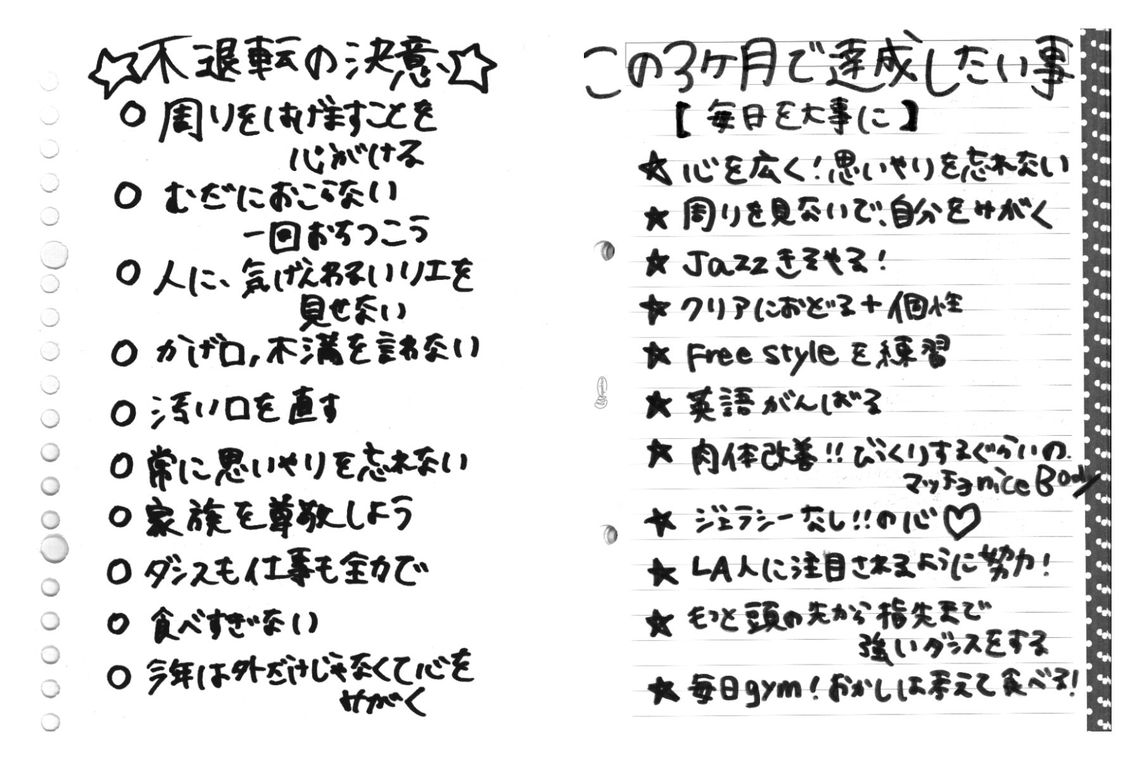 ☆不退転の決意☆
○ 周りをはげますことを
心がける
○ むだにおこらない
一回おちつこう
○ 人に、気げんわるいリエを
見せない
○ かげ口,不満を言わない
○ 汚い口を直す
○ 常に思いやりを忘れない
○ 家族を尊敬しよう
○ ダンスも仕事も全力で
○ 食べすぎない
○ 今年は外だけじゃなくて心を
みがく
この3ケ月で達成したい事
【毎日を大事に】
★ 心を広く!思いやりを忘れない
★ 周りを見ないで、自分をみがく
★ Jazzきるやる!
★ クリアにおどる+個性
★ Free styleを練習
★ 英語がんばる
★ 肉体改善!!びっくりするぐらいの
マッチョnice Body
★ ジェラシーなし!!の心♡
★ LA人に注目されるように努力!
★ もっと頭の先から指先まで
強いダンスをする
★ 毎日gym!おかしは考えて食べる!